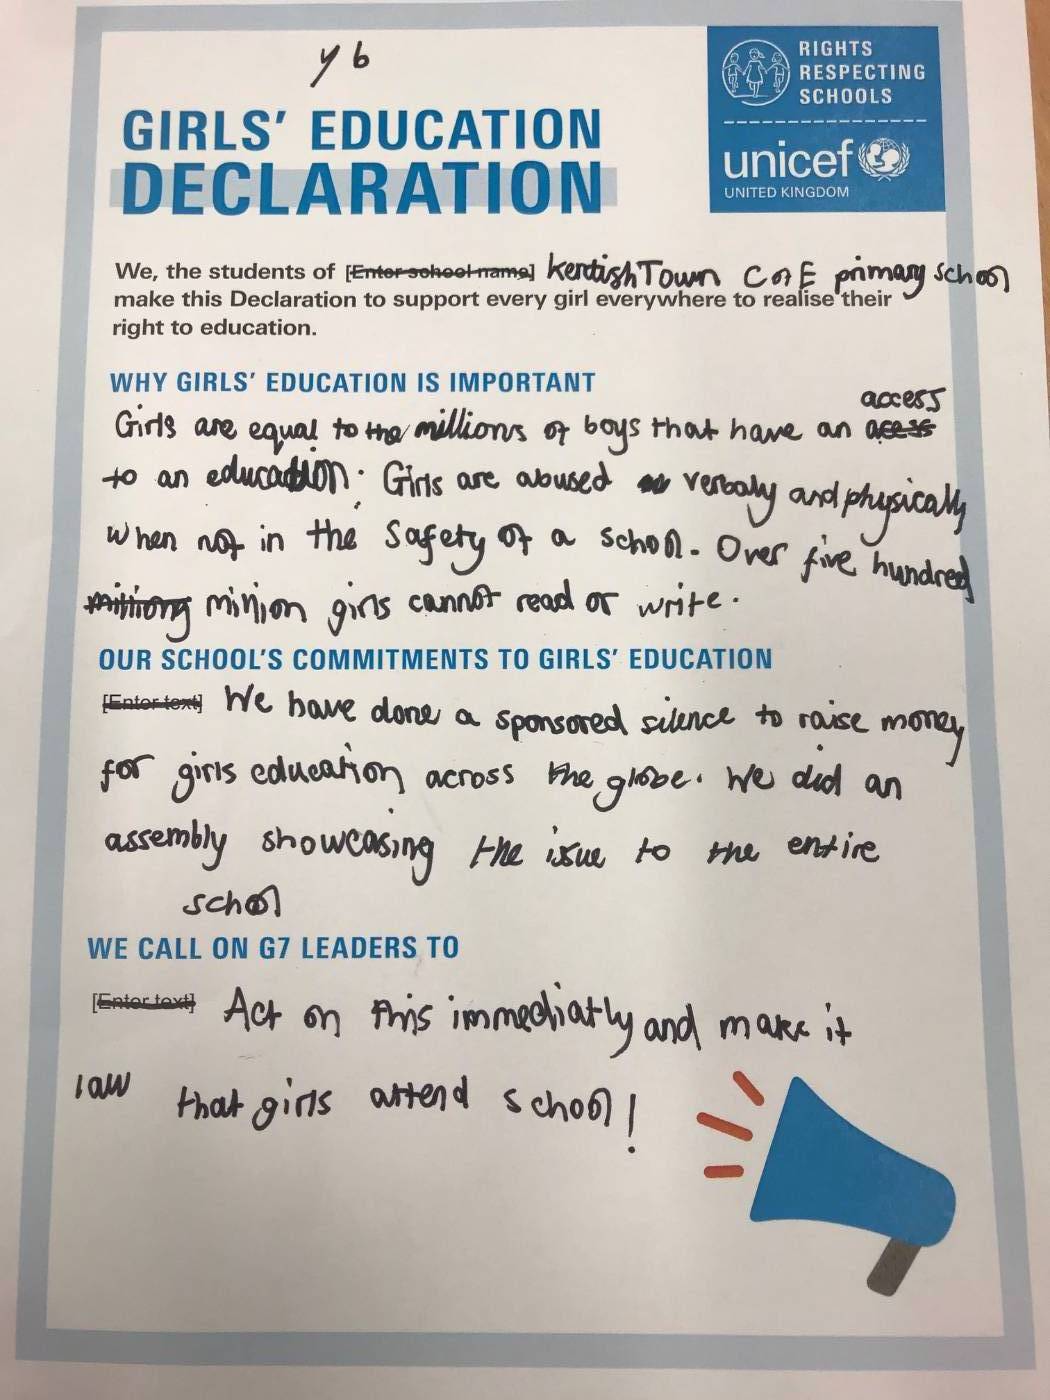 y6
RIGHTS
RESPECTING
SCHOOLS
unicef
UNITED KINGDOM
GIRLS' EDUCATION
DECLARATION
We, the students of [Enter school name] Kentish Town C of E primary school
make this Declaration to support every girl everywhere to realise their
right to education.
WHY GIRLS' EDUCATION IS IMPORTANT
access
Girls are equal to the millions of boys that have an acess
to an education. Girls are abused verbaly and physically
when not in the safety of a school. Over five hundred
millions million girls cannot read or write.
OUR SCHOOL'S COMMITMENTS TO GIRLS' EDUCATION
[Enter text] We have done a sponsored silence to raise money
for girls education across the globe. We did an
assembly showcasing the issue to the entire
school
WE CALL ON G7 LEADERS TO
[Enter text] Act on this immediatly and make it
law that girls attend school!